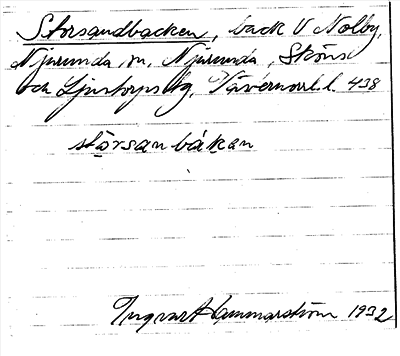 Storsandbacken, back V Nolby,
Njurunda sn, Njurunda, Sköns
och Ljustorps tg, Västernorrl. l. 438
stōrsanbákan
Ingvar Hammarström 1932